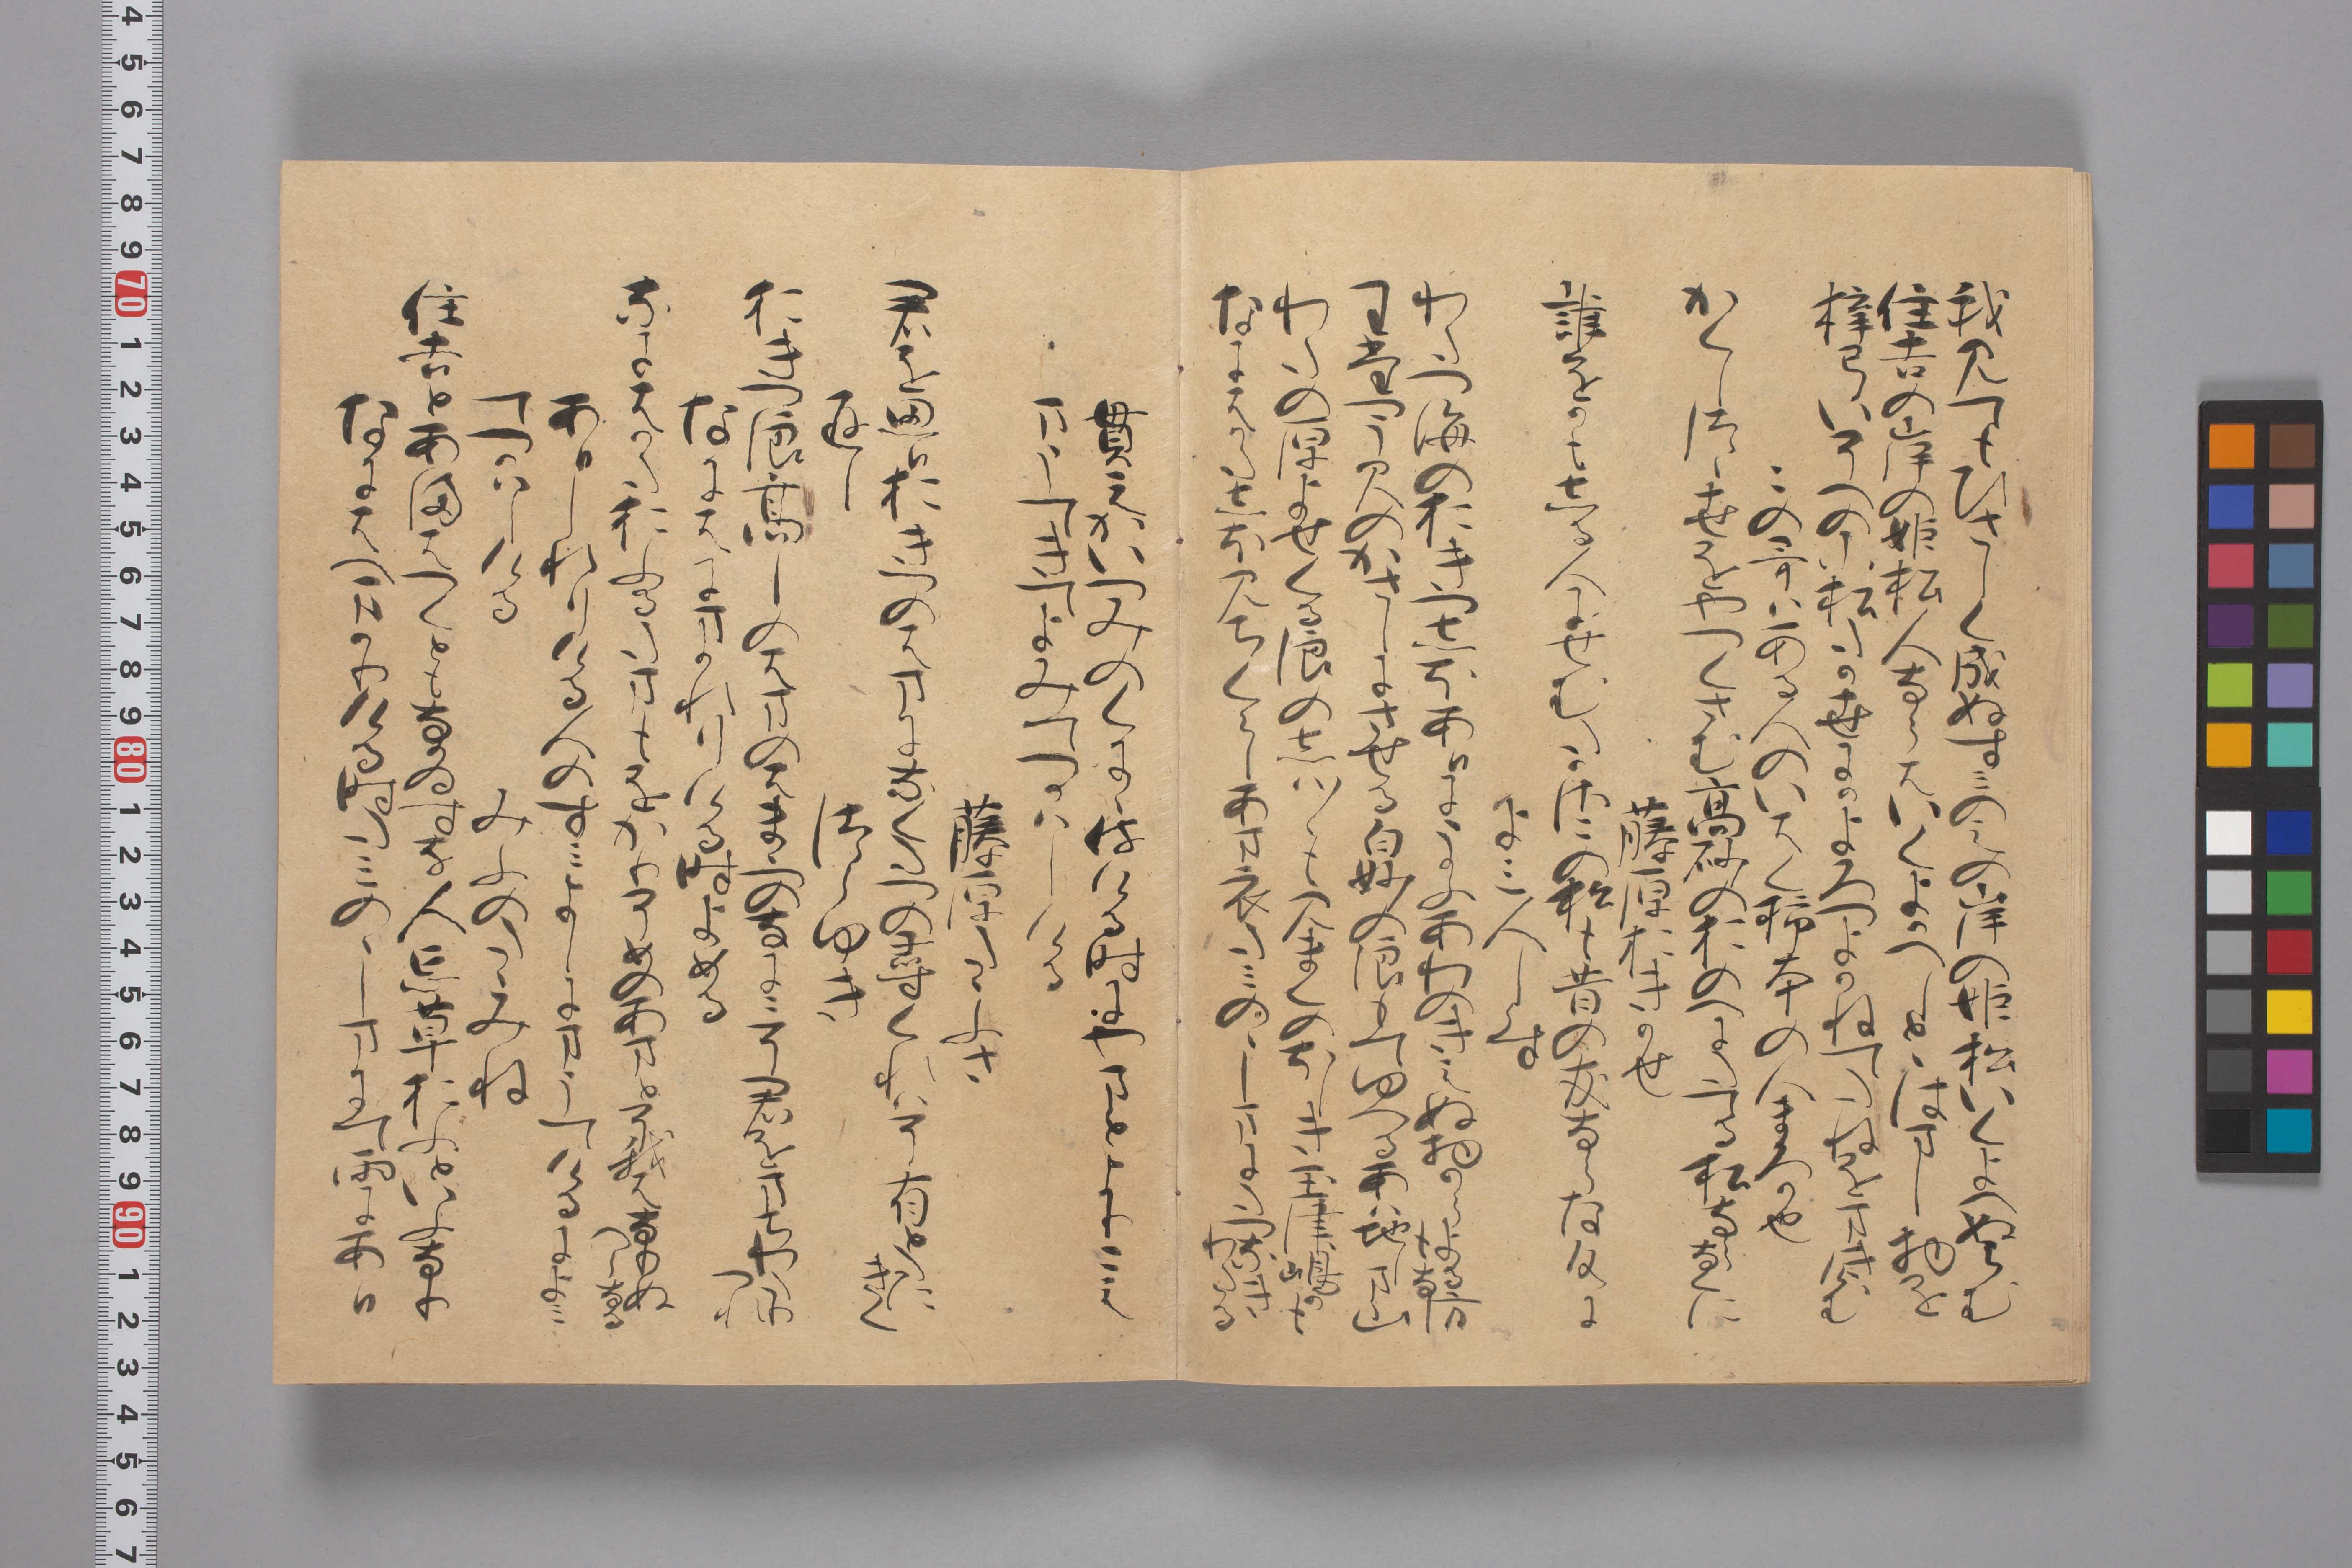 我見てもひさしく成ぬすみのえの岸の姫松いくよへぬらむ
住吉の岸の姫松人ならはいく世かへしととはまし物を
梓弓いそへのこ松たか世にかよろつ世かねてたねをまきけむ
この哥はある人のいはく柿本人まろか也
かくしつゝ世をやつくさむ高砂のをのへにたてる松ならなくに
藤原おきかせ
誰をかもしる人にせむたかさこの松も昔の友ならなくに
よみ人しらす
わたつ海のおきつしほあひにうかふあわのきえぬ物からよる方もなし
わたつ海のかさしにさせる白妙の浪もてゆへるあはちしま山
わたの原よせくる浪のしはしはも見まくのほしき玉津嶋かも
なにはかたしほみちくらしあま衣たみのゝ嶋にたつなきわたる
貫之かいつみのくにゝ侍ける時にやまと
よりこえまうてきてよみてつかはしける
藤原たゝふさ
君を思ひおきつのはまに鳴たつの尋くれはそありとたにきく
返し　つらゆき
おきつ浪たかしのはまの浜松の名にこそ君をまちわたりつれ
なにはにまかれりける時よめる
なにはかたおふるたまもをかりそめのあまとそ我はなりぬへらなる
あひしれりける人の住吉にまうてけるに
よみてつかはしける　みふのたゝみね
住吉とあまは告ともなかゐすな人忘草おふといふなり
なにはへまかりける時たみのゝ嶋にて雨に